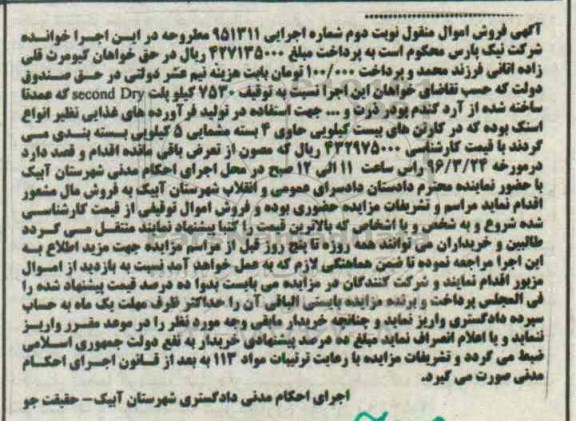 آگهی فروش اموال منقول نوبت دوم شماره اجرایی ۹۵۱۳۱۱ مطروحه در این اجرا خوانده
شرکت نیک پارس محکوم است به پرداخت مبلغ ۴۲۷۱۳۵۰۰۰ ریال در حق خواهان کیومرث قلی
زاده اتانی فرزند محمد و پرداخت ۱۰۰/۰۰۰ تومان بابت هزینه نیم عشر دولتی در حق صندوق
دولت که حسب تقاضای خواهان این اجرا نسبت به توقیف ۷۵۳۰ کیلو پلت second Dry که عمدتا
ساخته شده از آرد گندم پودر ذرت و ... جهت استفاده در تولید فرآورده های غذایی نظیر انواع
اسنک بوده که در کارتن های بیست کیلویی حاوی ۴ بسته مشمایی ۵ کیلویی بسته بندی می
گردند با قیمت کارشناسی ۴۳۲۹۷۵۰۰۰ ریال که مصون از تعرض باقی مانده اقدام و قصد دارد
درمورخه ۹۶/۳/۲۴ راس ساعت ۱۱ الی ۱۲ صبح در محل اجرای احکام مدنی شهرستان آبیک
با حضور نماینده محترم دادستان دادسرای عمومی و انقلاب شهرستان آبیک به فروش مال مشعور
اقدام نماید مراسم و تشریفات مزایده حضوری بوده و فروش اموال توقیفی از قیمت کارشناسی
شده شروع و به شخص و یا اشخاص که بالاترین قیمت را کتبا پیشنهاد نمایند منتقل می گردد
طالبین و خریداران می توانند همه روزه تا پنج روز قبل از مراسم مزایده جهت مزید اطلاع به
این اجرا مراجعه نموده تا ضمن هماهنگی لازم که به عمل خواهد آمد نسبت به بازدید از اموال
مزبور اقدام نمایند و شرکت کنندگان در مزایده می بایست بدوا ده درصد قیمت پیشنهاد شده را
فی المجلس پرداخت و برنده مزایده بایستی الباقی آن را حداکثر ظرف مهلت یک ماه به حساب
سپرده دادگستری واریز نماید و چنانچه خریدار مابقی وجه مورد نظر را در موعد مقرر واریز
ننماید و یا اعلام انصراف نماید مبلغ ده درصد پیشنهادی خریدار به نفع دولت جمهوری اسلامی
ضبط می گردد و تشریفات مزایده با رعایت ترتیبات مواد ۱۱۳ به بعد از قانون اجرای احکام
مدنی صورت می گیرد.
اجرای احکام مدنی دادگستری شهرستان آبیک – حقیقت جو